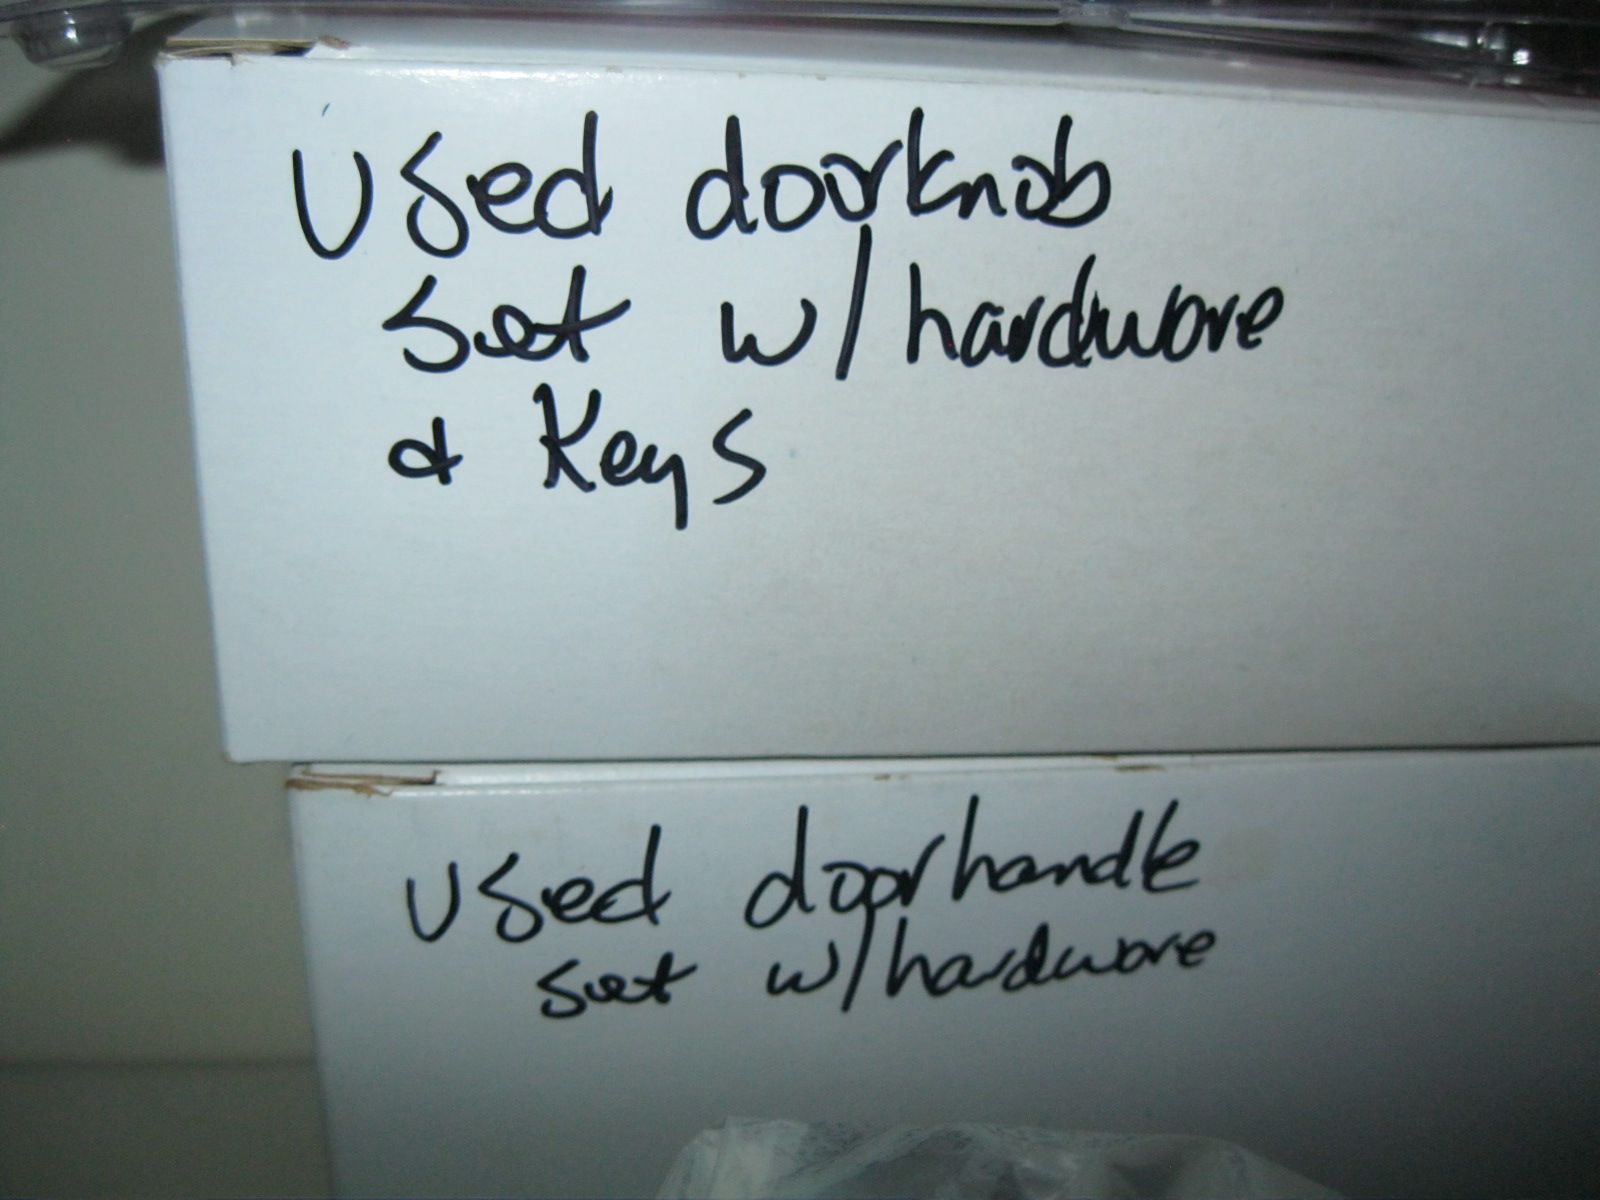 Used doorknob
set w/hardware
& Keys
Used doorhandle
set w/hardware